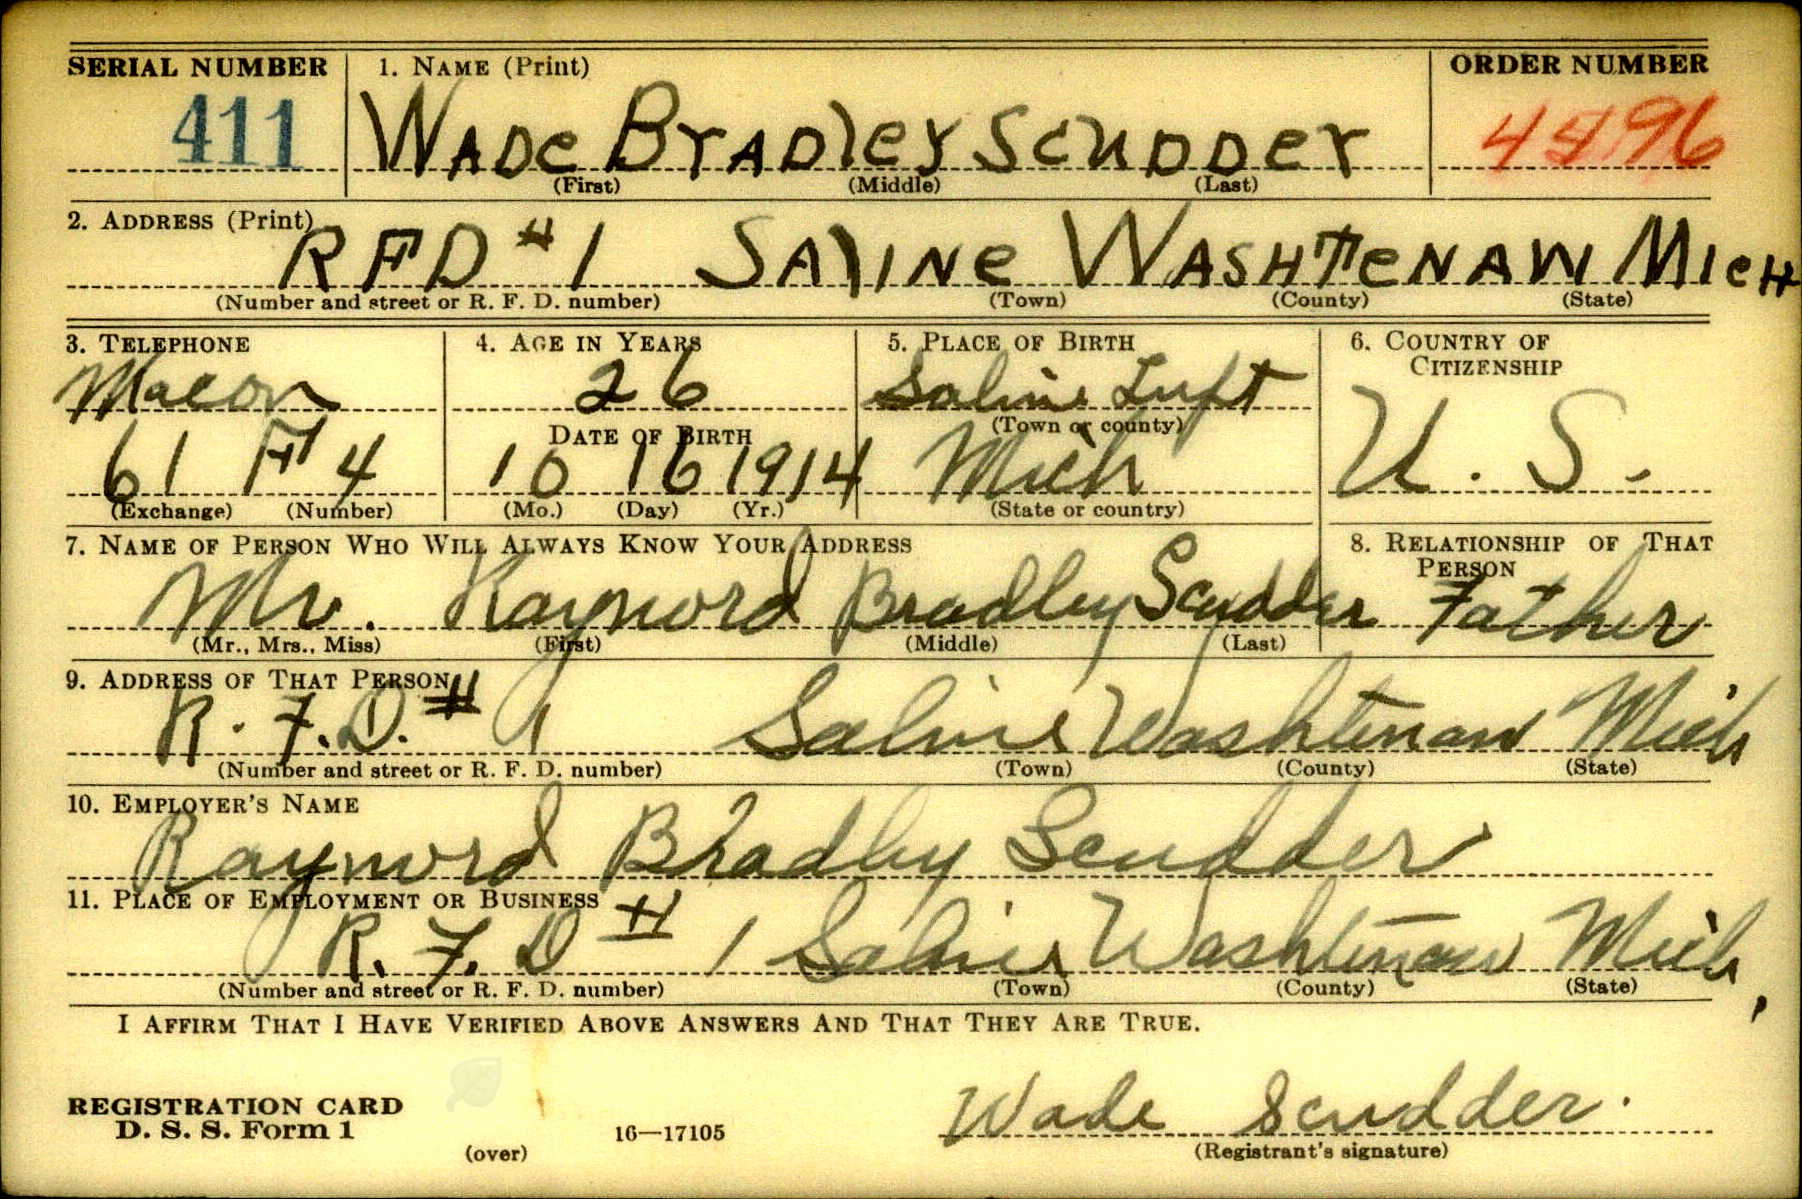 SERIAL NUMBER 1. NAME (Print) ORDER NUMBER
411 WADe BrADley Scudder
(First) (Middle) (Last)
2. ADDRESS (Print)
RFD #1 SAlINe WASHTeNAW MIcH
(Number and street or R. F. D. number) (Town) (County) (State)
3. TELEPHONE 4. AGE IN YEARS 5. PLACE OF BIRTH 6. COUNTRY OF CITIZENSHIP
Macon 26 Saline
DATE OF BIRTH (Town or county)
61 F 4 10 16 1914 Mich U. S.
(Exchange) (Number) (Mo.) (Day) (Yr.) (State or country)
7. NAME OF PERSON WHO WILL ALWAYS KNOW YOUR ADDRESS 8. RELATIONSHIP OF THAT PERSON
Mr. Raynord Bradley Scudder Father
(Mr., Mrs., Miss) (First) (Middle) (Last)
9. ADDRESS OF THAT PERSON
R. F. D. # 1 Saline Washtenaw Mich
(Number and street or R. F. D. number) (Town) (County) (State)
10. EMPLOYER'S NAME
Raynord Bradley Scudder
11. PLACE OF EMPLOYMENT OR BUSINESS
R. F. D # 1 Saline Washtenaw Mich,
(Number and street or R. F. D. number) (Town) (County) (State)
I AFFIRM THAT I HAVE VERIFIED ABOVE ANSWERS AND THAT THEY ARE TRUE.
REGISTRATION CARD
D. S. S. Form 1 Wade Scudder.
(over) 16—17105 (Registrant's signature)